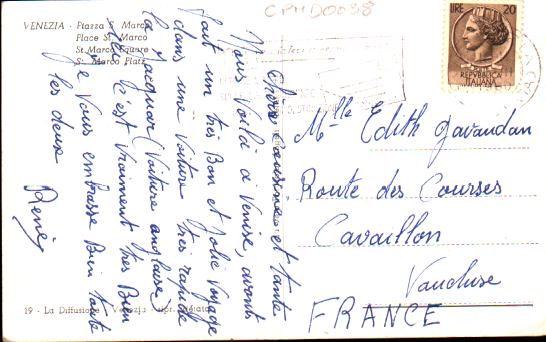 CPMD0038
VENEZIA - Piazza S. Marco
Place St. Marco
St. Marco Square
St. Marco Platz
Chère cousine et tante
Nous Voilà à Venise, avons
fait un très Bon et Jolie Voyage
dans une Voiture très rapide
la Jacquar (Voiture anglaise)
c'est vraiment très Bien
Je Vous embrasse Bien toute
les deux
René
19 - La Diffusione - Venezia
LIRE 20
REPVBBLICA
ITALIANA
Mlle Edith Gavaudan
Route des Courses
Cavaillon
Vaucluse
FRANCE